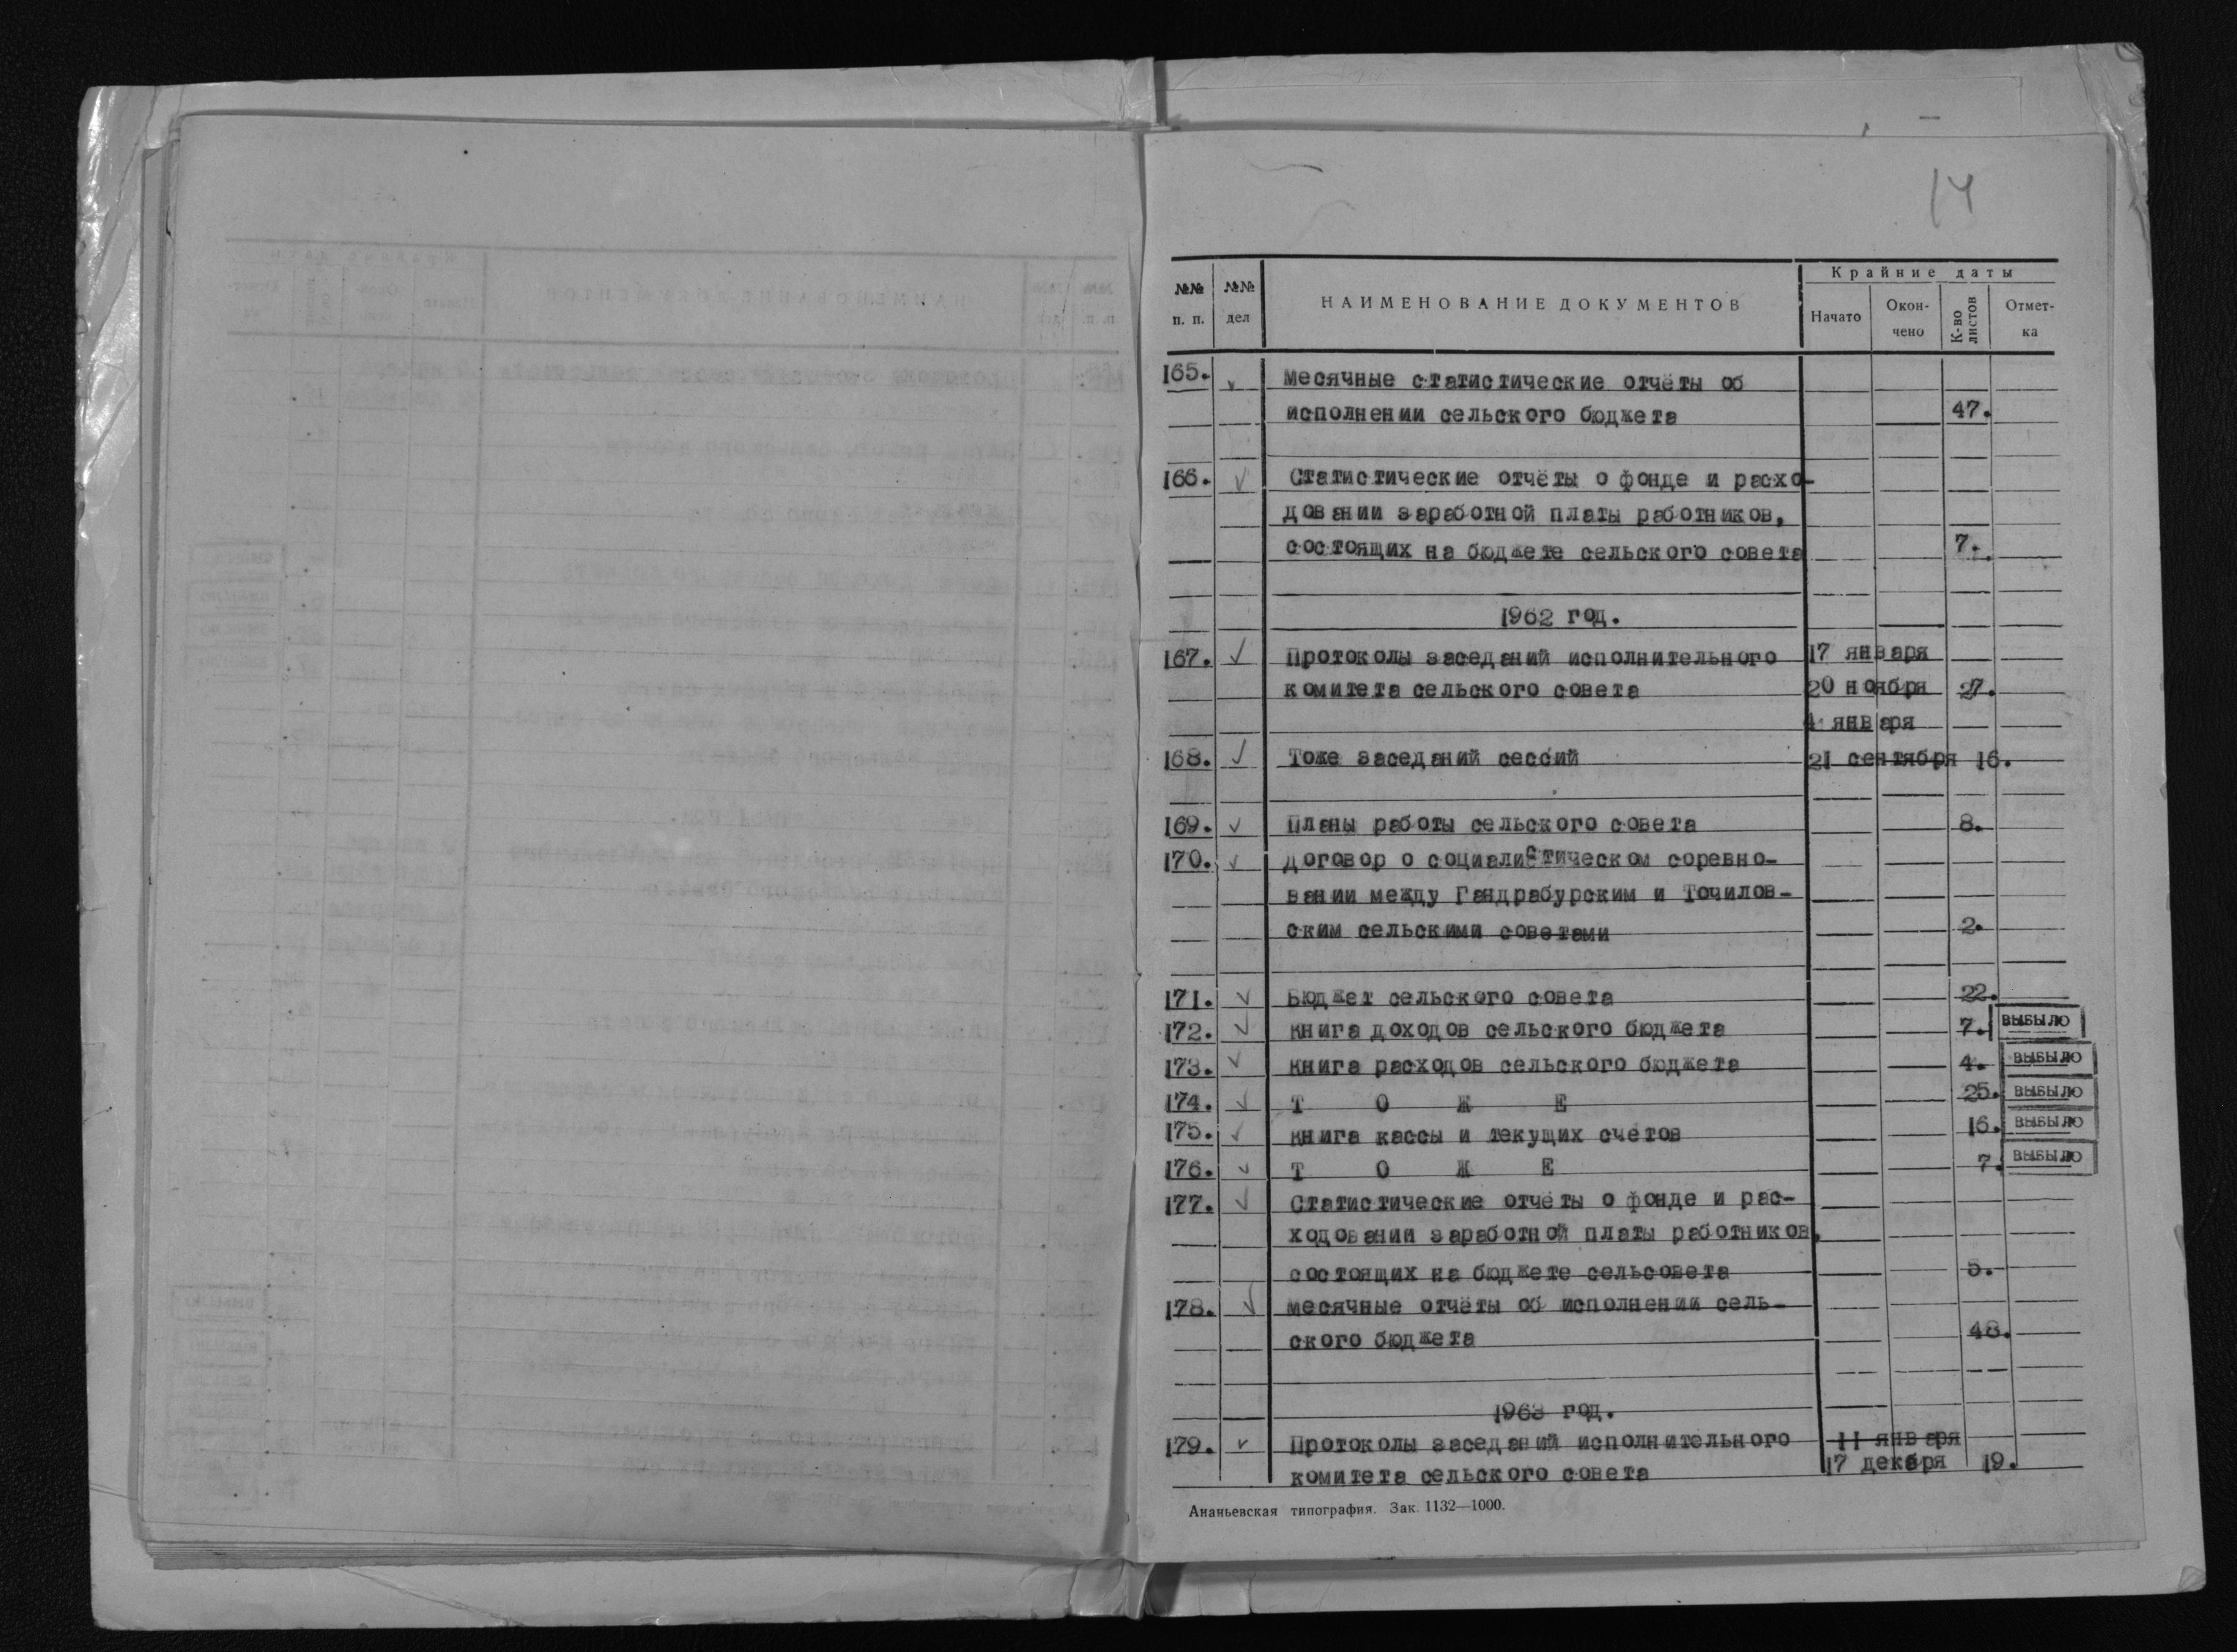 14
№№ п. п. №№ дел НАИМЕНОВАНИЕ ДОКУМЕНТОВ Крайние даты
Начато Окончено К-во листов Отметка
165. Месячные статистические отчёты об
исполнении сельского бюджета 47.
166. Статистические отчёты о фонде и расхо-
довании заработной платы работников,
состоящих на бюджете сельского совета 7.
1962 год.
167. Протоколы заседаний исполнительного 17 января
комитета сельского совета 20 ноября 27.
4 января
168. Тоже заседаний сессий 21 сентября 16.
169. Планы работы сельского совета 8.
170. Договор о социалистическом соревно-
вании между Гандрабурским и Точилов-
ским сельскими советами 2.
171. Бюджет сельского совета 22.
172. Книга доходов сельского бюджета 7. ВЫБЫЛО
173. Книга расходов сельского бюджета 4. ВЫБЫЛО
174. Т О Ж Е 25. ВЫБЫЛО
175. Книга кассы и текущих счетов 16. ВЫБЫЛО
176. Т О Ж Е 7. ВЫБЫЛО
177. Статистические отчёты о фонде и рас-
ходовании заработной платы работников,
состоящих на бюджете сельсовета 5.
178. Месячные отчёты об исполнении сель-
ского бюджета 48.
1963 год.
179. Протоколы заседаний исполнительного 11 января
комитета сельского совета 17 декабря 19.
Ананьевская типография. Зак. 1132—1000.